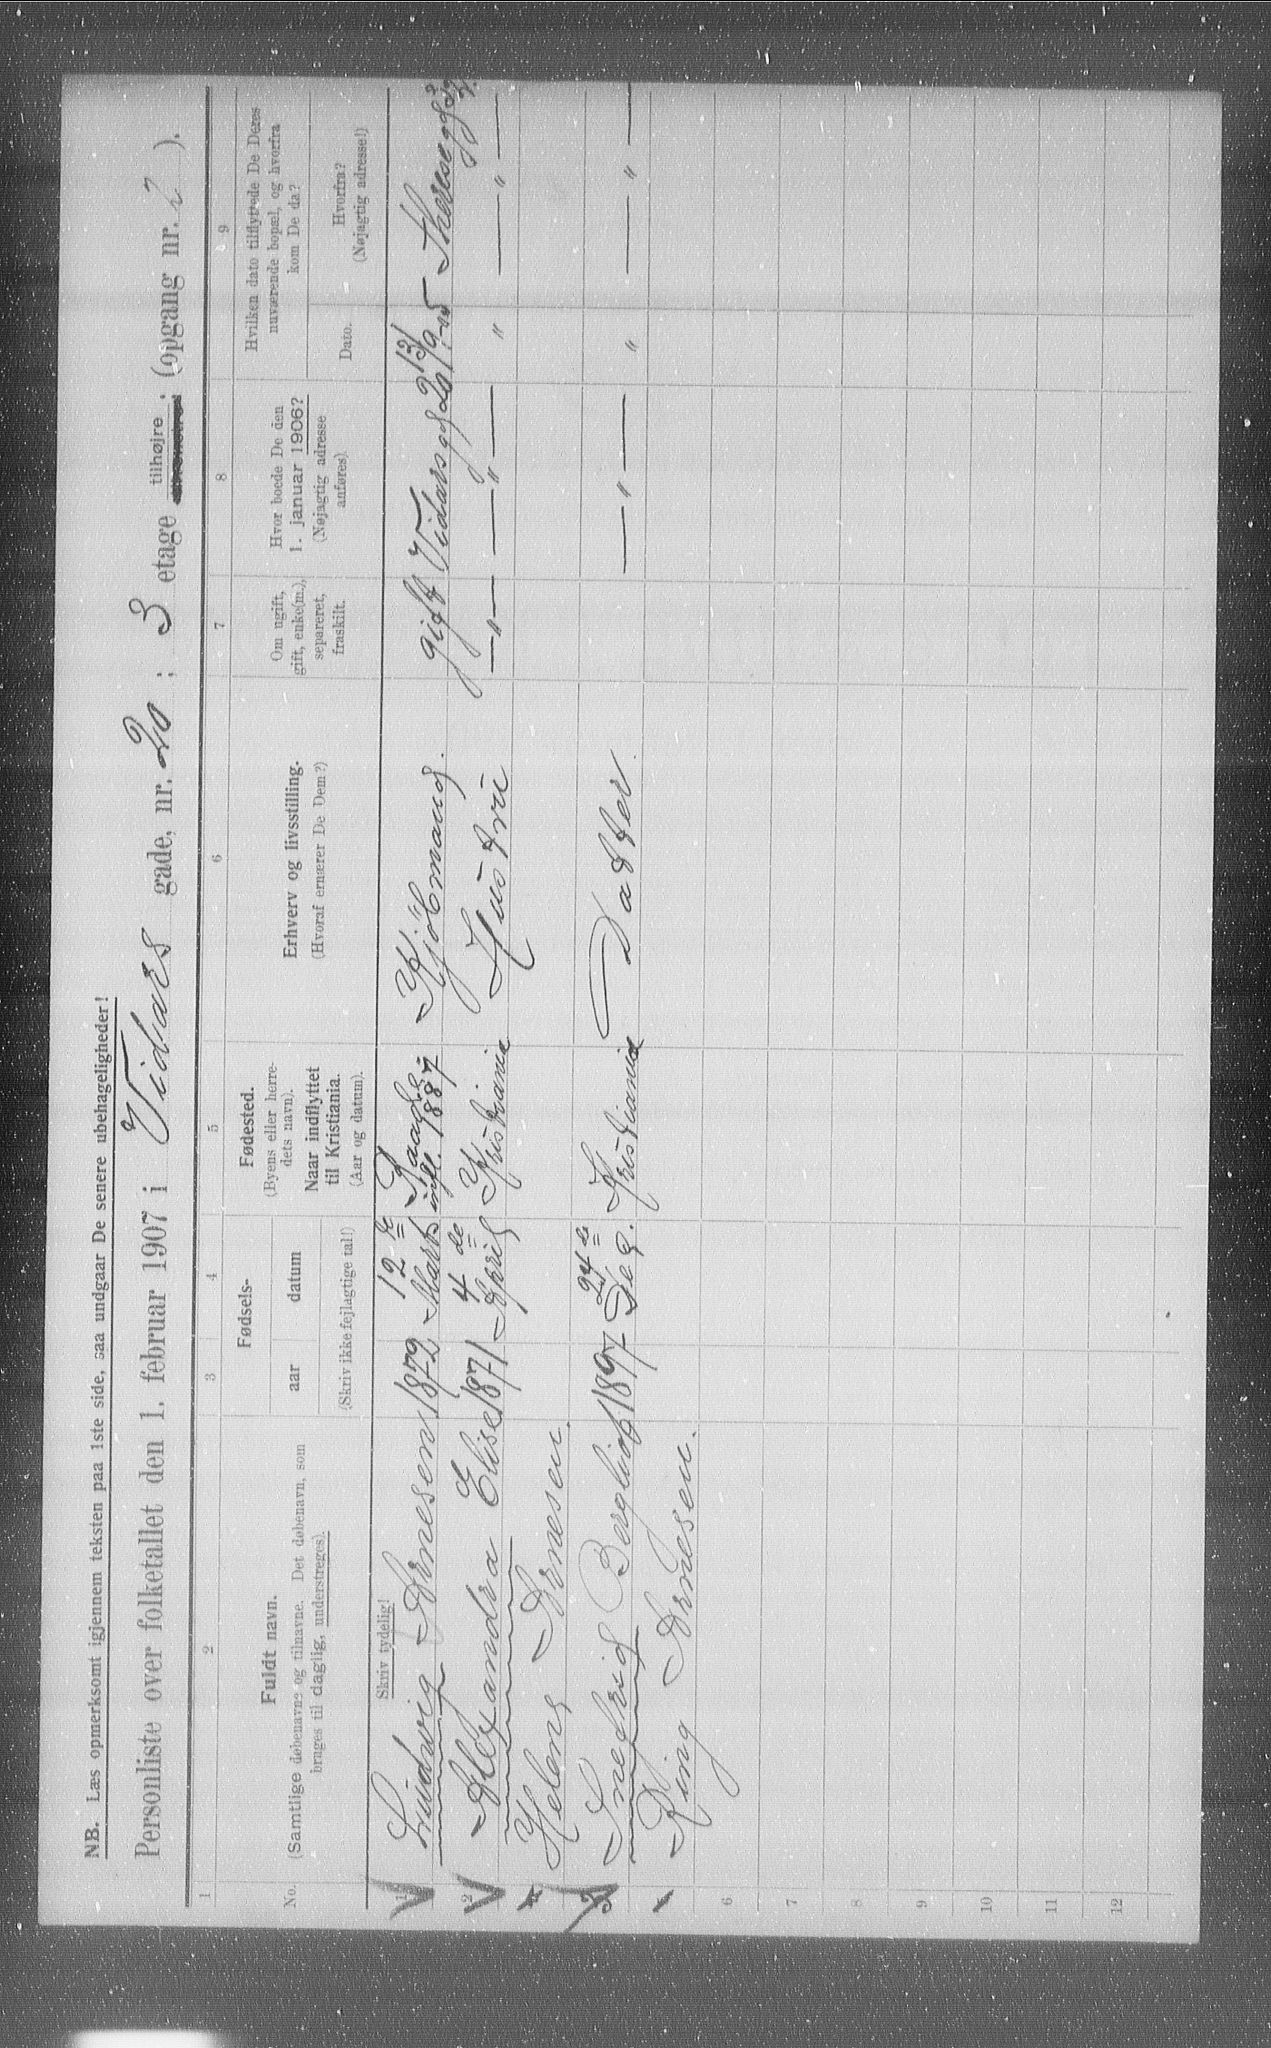 NB. Læs opmerksomt igjennem teksten paa 1ste side, saa undgaar De senere ubehageligheder!
Personliste over folketallet den 1. februar 1907 i Vidars gade, nr. 20 ; 3 etage tilhøjre, (opgang nr. 2 ).
1 2 3 4 5 6 7 8 9
No.
Fuldt navn.
(Samtlige døbenavne og tilnavne. Det døbenavn, som
bruges til daglig, understreges).
Fødsels-
aar datum
(Skriv ikke fejlagtige tal!)
Fødested.
(Byens eller herre-
dets navn).
Naar indflyttet
til Kristiania.
(Aar og datum).
Erhverv og livsstilling.
(Hvoraf ernærer De Dem?)
Om ugift,
gift, enke(m.),
separeret,
fraskilt.
Hvor boede De den
1. januar 1906?
(Nøjagtig adresse
anføres).
Hvilken dato tilflyttede De Deres
nuværende bopæl, og hvorfra
kom De da?
Dato.
Hvorfra?
(Nøjagtig adresse!)
Skriv tydelig!
1 Ludvig Arnesen 1872 12te Marts Raade indfl. 1887 Kjöbmand. gift Vidarsgd 20 13/9-05 Theresegd
2 Alexandra Elise 1871 4de April Kristiania Hustru — " — — " — " — " —
Helene Arnesen.
3 Snefrid Bergliot 1897 24de Des. Kristiania Datter. — " — " — " —
Ring Arnesen.
6
7
8
9
10
11
12